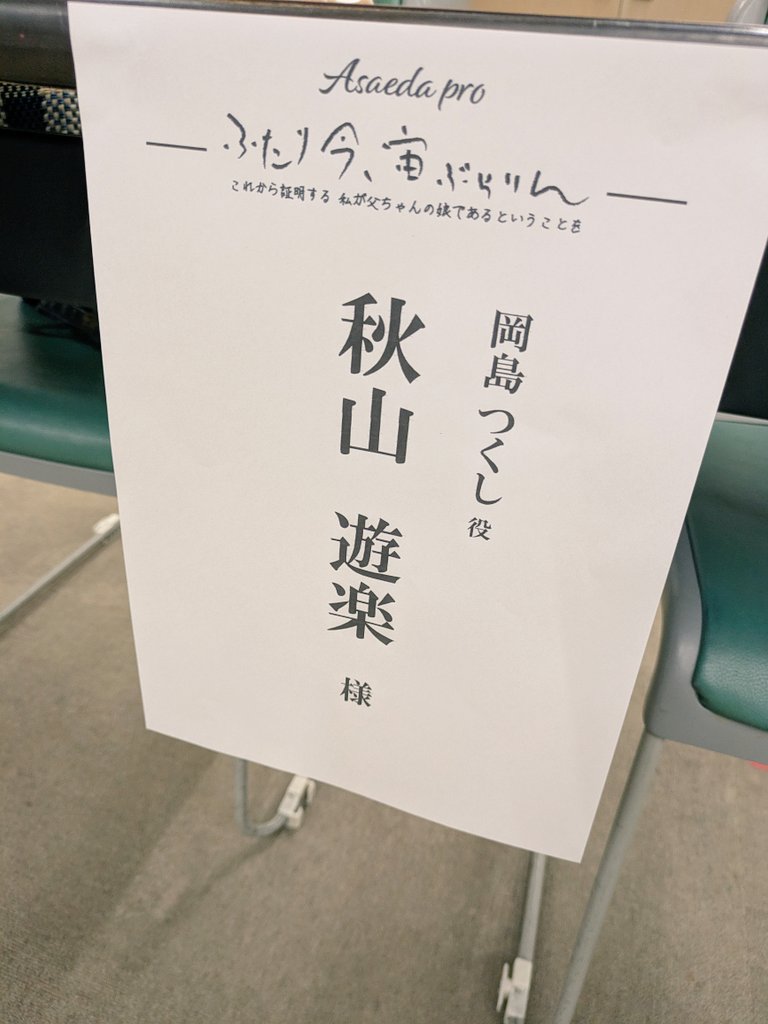 Asaeda pro
ふたり今、宙ぶらりん
これから証明する 私が父ちゃんの娘であるということを
岡島 つくし 役
秋山 遊楽 様